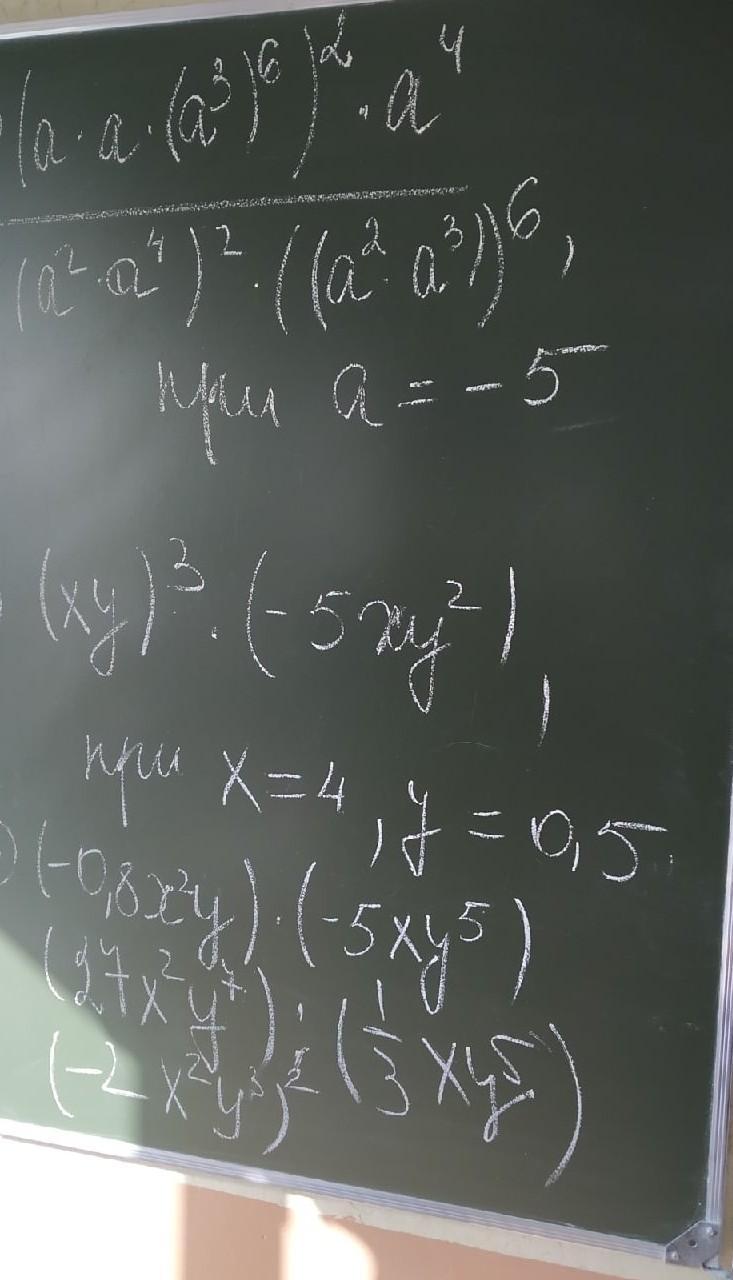 (a · a · (a³)⁶)² · a⁴
(a² · a⁴)² · ((a² · a³))⁶,
при a = -5
(xy)³ · (-5xy²),
при x = 4, y = 0,5.
(-0,8x²y) · (-5xy⁵)
(27x²y⁷) · (1/3 xy⁵)
(-2x²y³)²